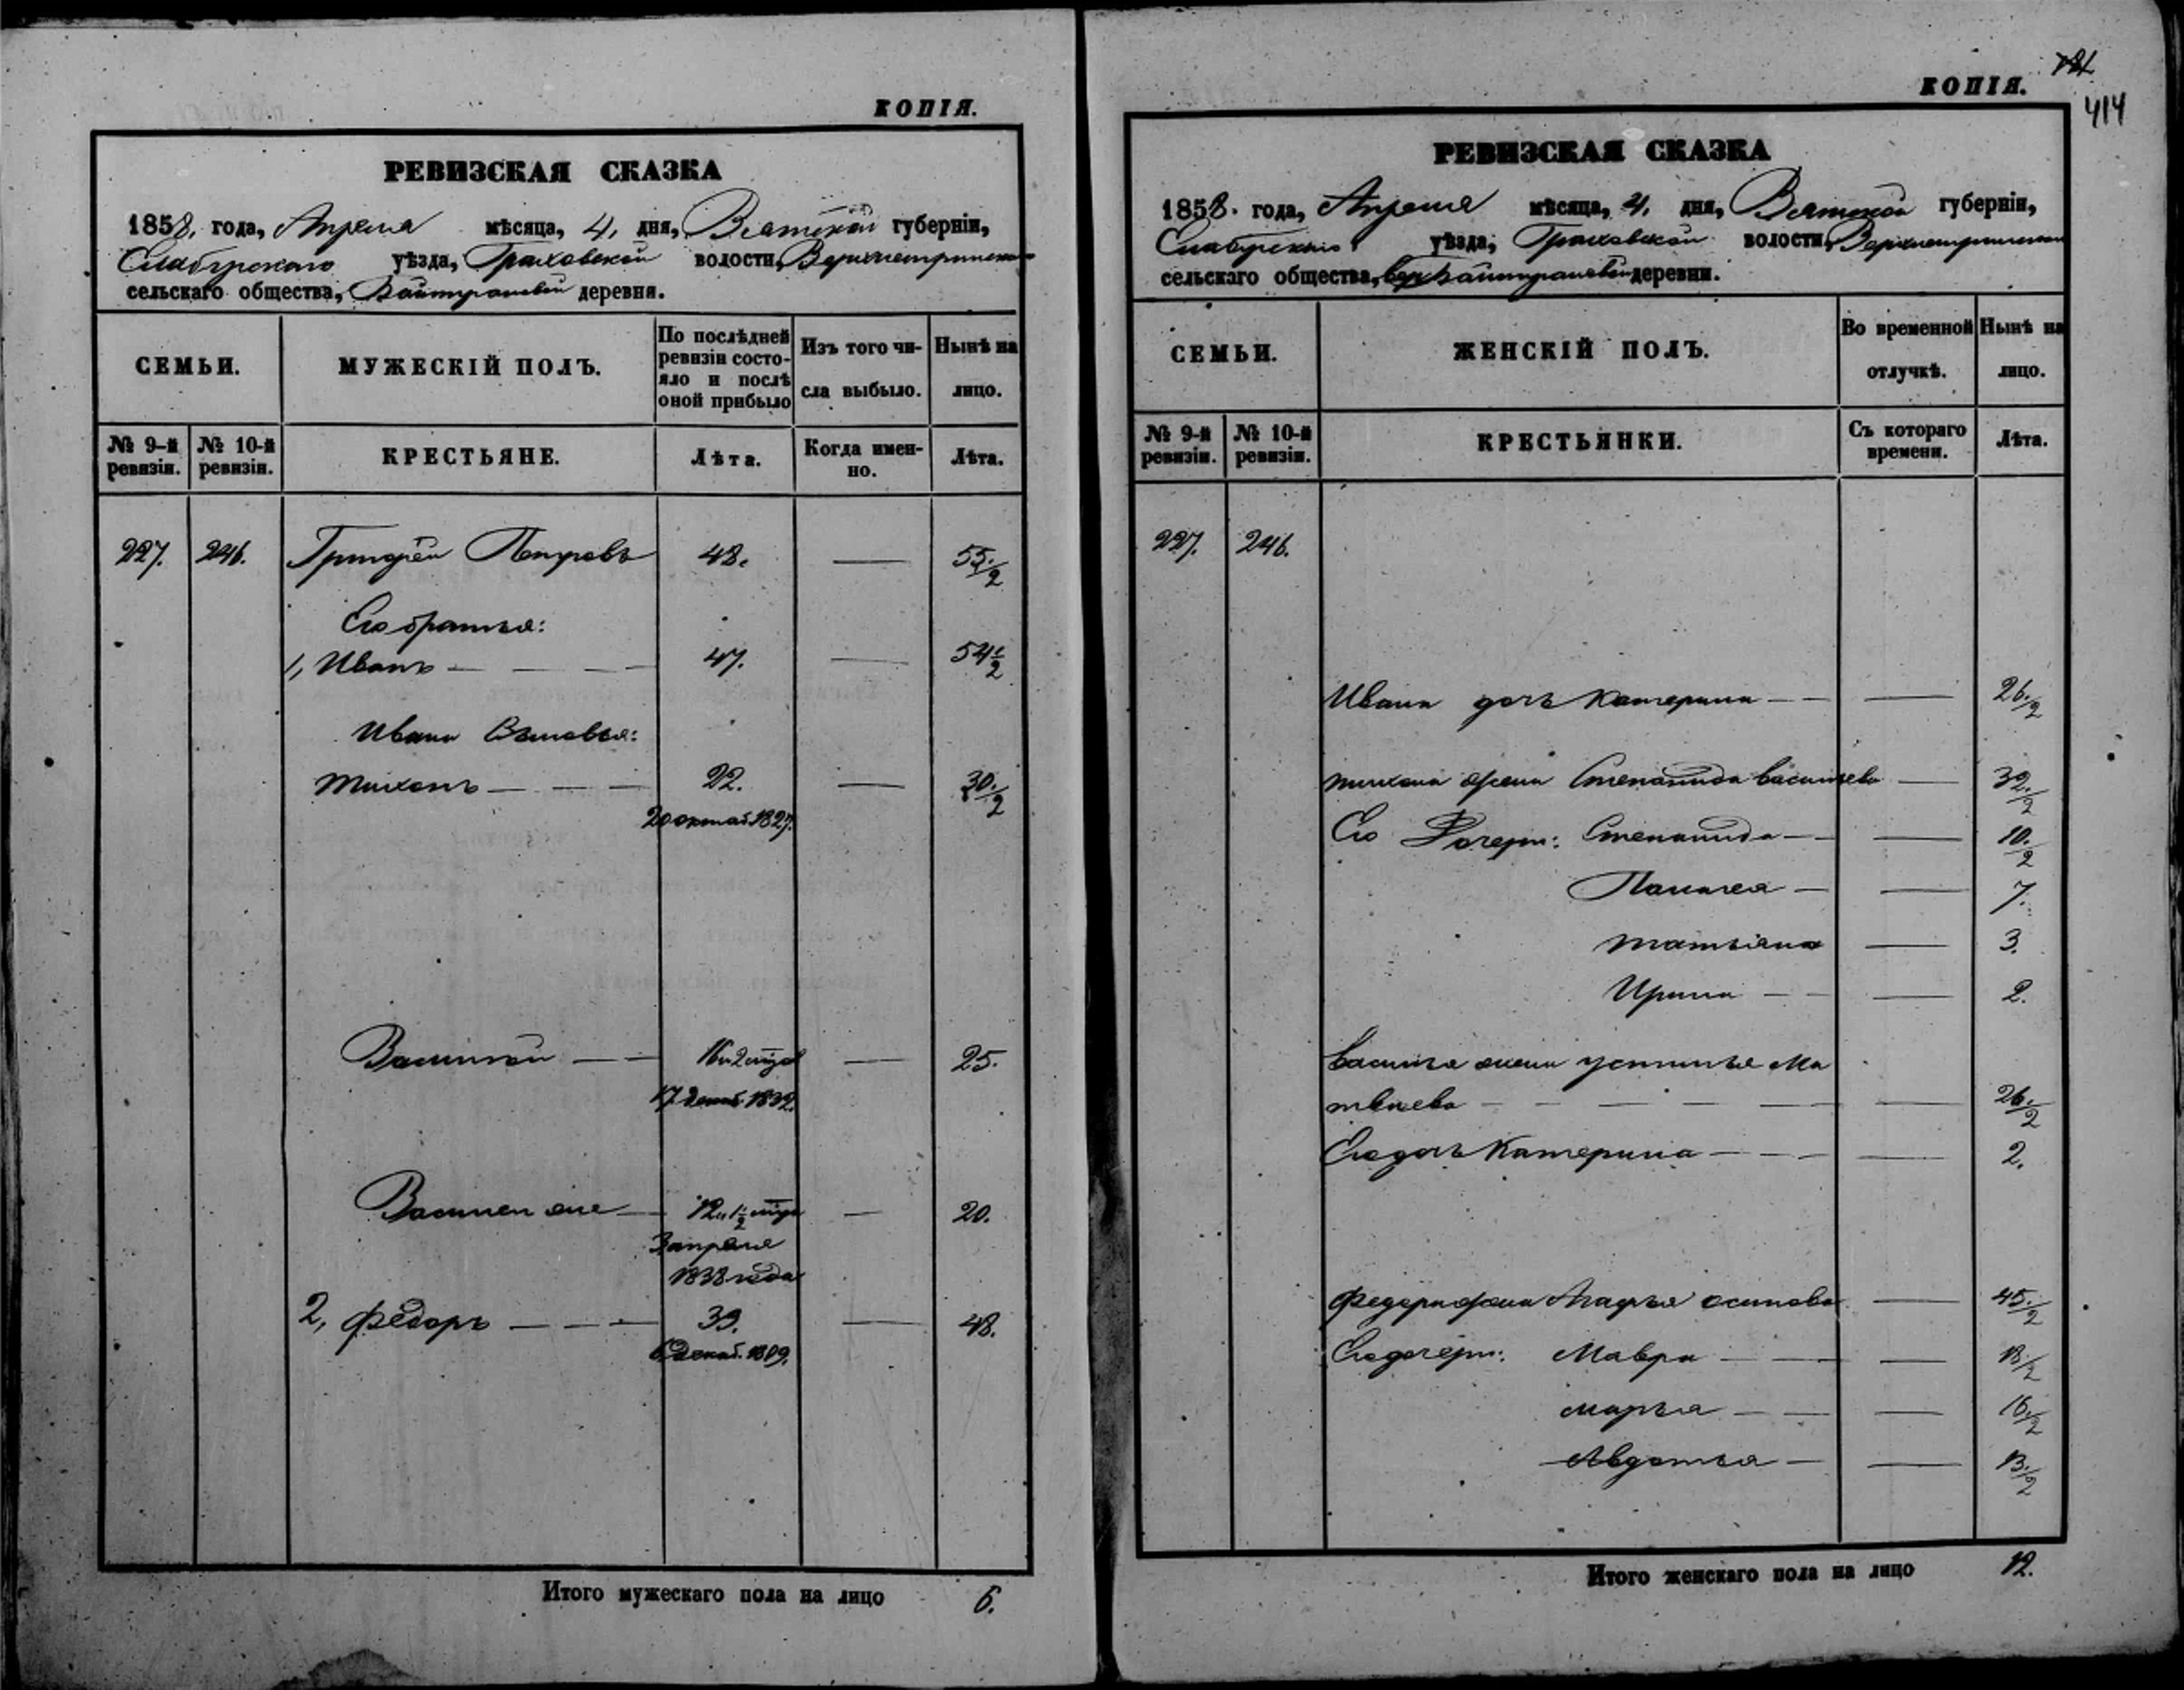 КОПІЯ.
РЕВИЗСКАЯ СКАЗКА
1858. года, Апреля мѣсяца, 4, дня, Вятской губерніи,
Елабужскаго уѣзда, Граховской волости,
сельскаго общества, деревня.
СЕМЬИ.
МУЖЕСКІЙ ПОЛЪ.
По послѣдней
ревизіи состо-
яло и послѣ
оной прибыло
Изъ того чи-
сла выбыло.
Нынѣ на
лицо.
№ 9-й
ревизіи.
№ 10-й
ревизіи.
КРЕСТЬЯНЕ.
Лѣта.
Когда имен-
но.
Лѣта.
227. 246. Григорій Петровъ 48. — 55 1/2
Его братья:
1, Иванъ — — — 47. — 54 1/2
Ивана Сыновья:
Тихонъ — — — 22. — 30 1/2
20 октяб. 1827.
Василій — — — 25.
17 декаб. 1832.
Василей же — — 20.
3 апреля
1838 года
2, Федоръ — — — 39. — 48.
6 декаб. 1809.
Итого мужескаго пола на лицо 6.
КОПІЯ.
414
РЕВИЗСКАЯ СКАЗКА
1858. года, Апреля мѣсяца, 4. дня, Вятской губерніи,
уѣзда, Граховской волости,
сельскаго общества, деревни.
СЕМЬИ.
ЖЕНСКІЙ ПОЛЪ.
Во временной
отлучкѣ.
Нынѣ на
лицо.
№ 9-й
ревизіи.
№ 10-й
ревизіи.
КРЕСТЬЯНКИ.
Съ котораго
времени.
Лѣта.
227. 246.
Ивана дочь Катерина — — — 26 1/2
Тихона жена Степанида Васильева — 32 1/2
Его Дочери: Степанида — — — 10 1/2
Палагея — — 7.
Татьяна — 3.
Ирина — — — 2.
Василья жена Устинья Ма
твеева — — — — — 26 1/2
Его дочь Катерина — — — — 2.
Федора жена Агафья Осипова — 45 1/2
Его дочери: Мавра — — — 18 1/2
Марья — — — 16 1/2
Авдотья — — 13 1/2
Итого женскаго пола на лицо 12.